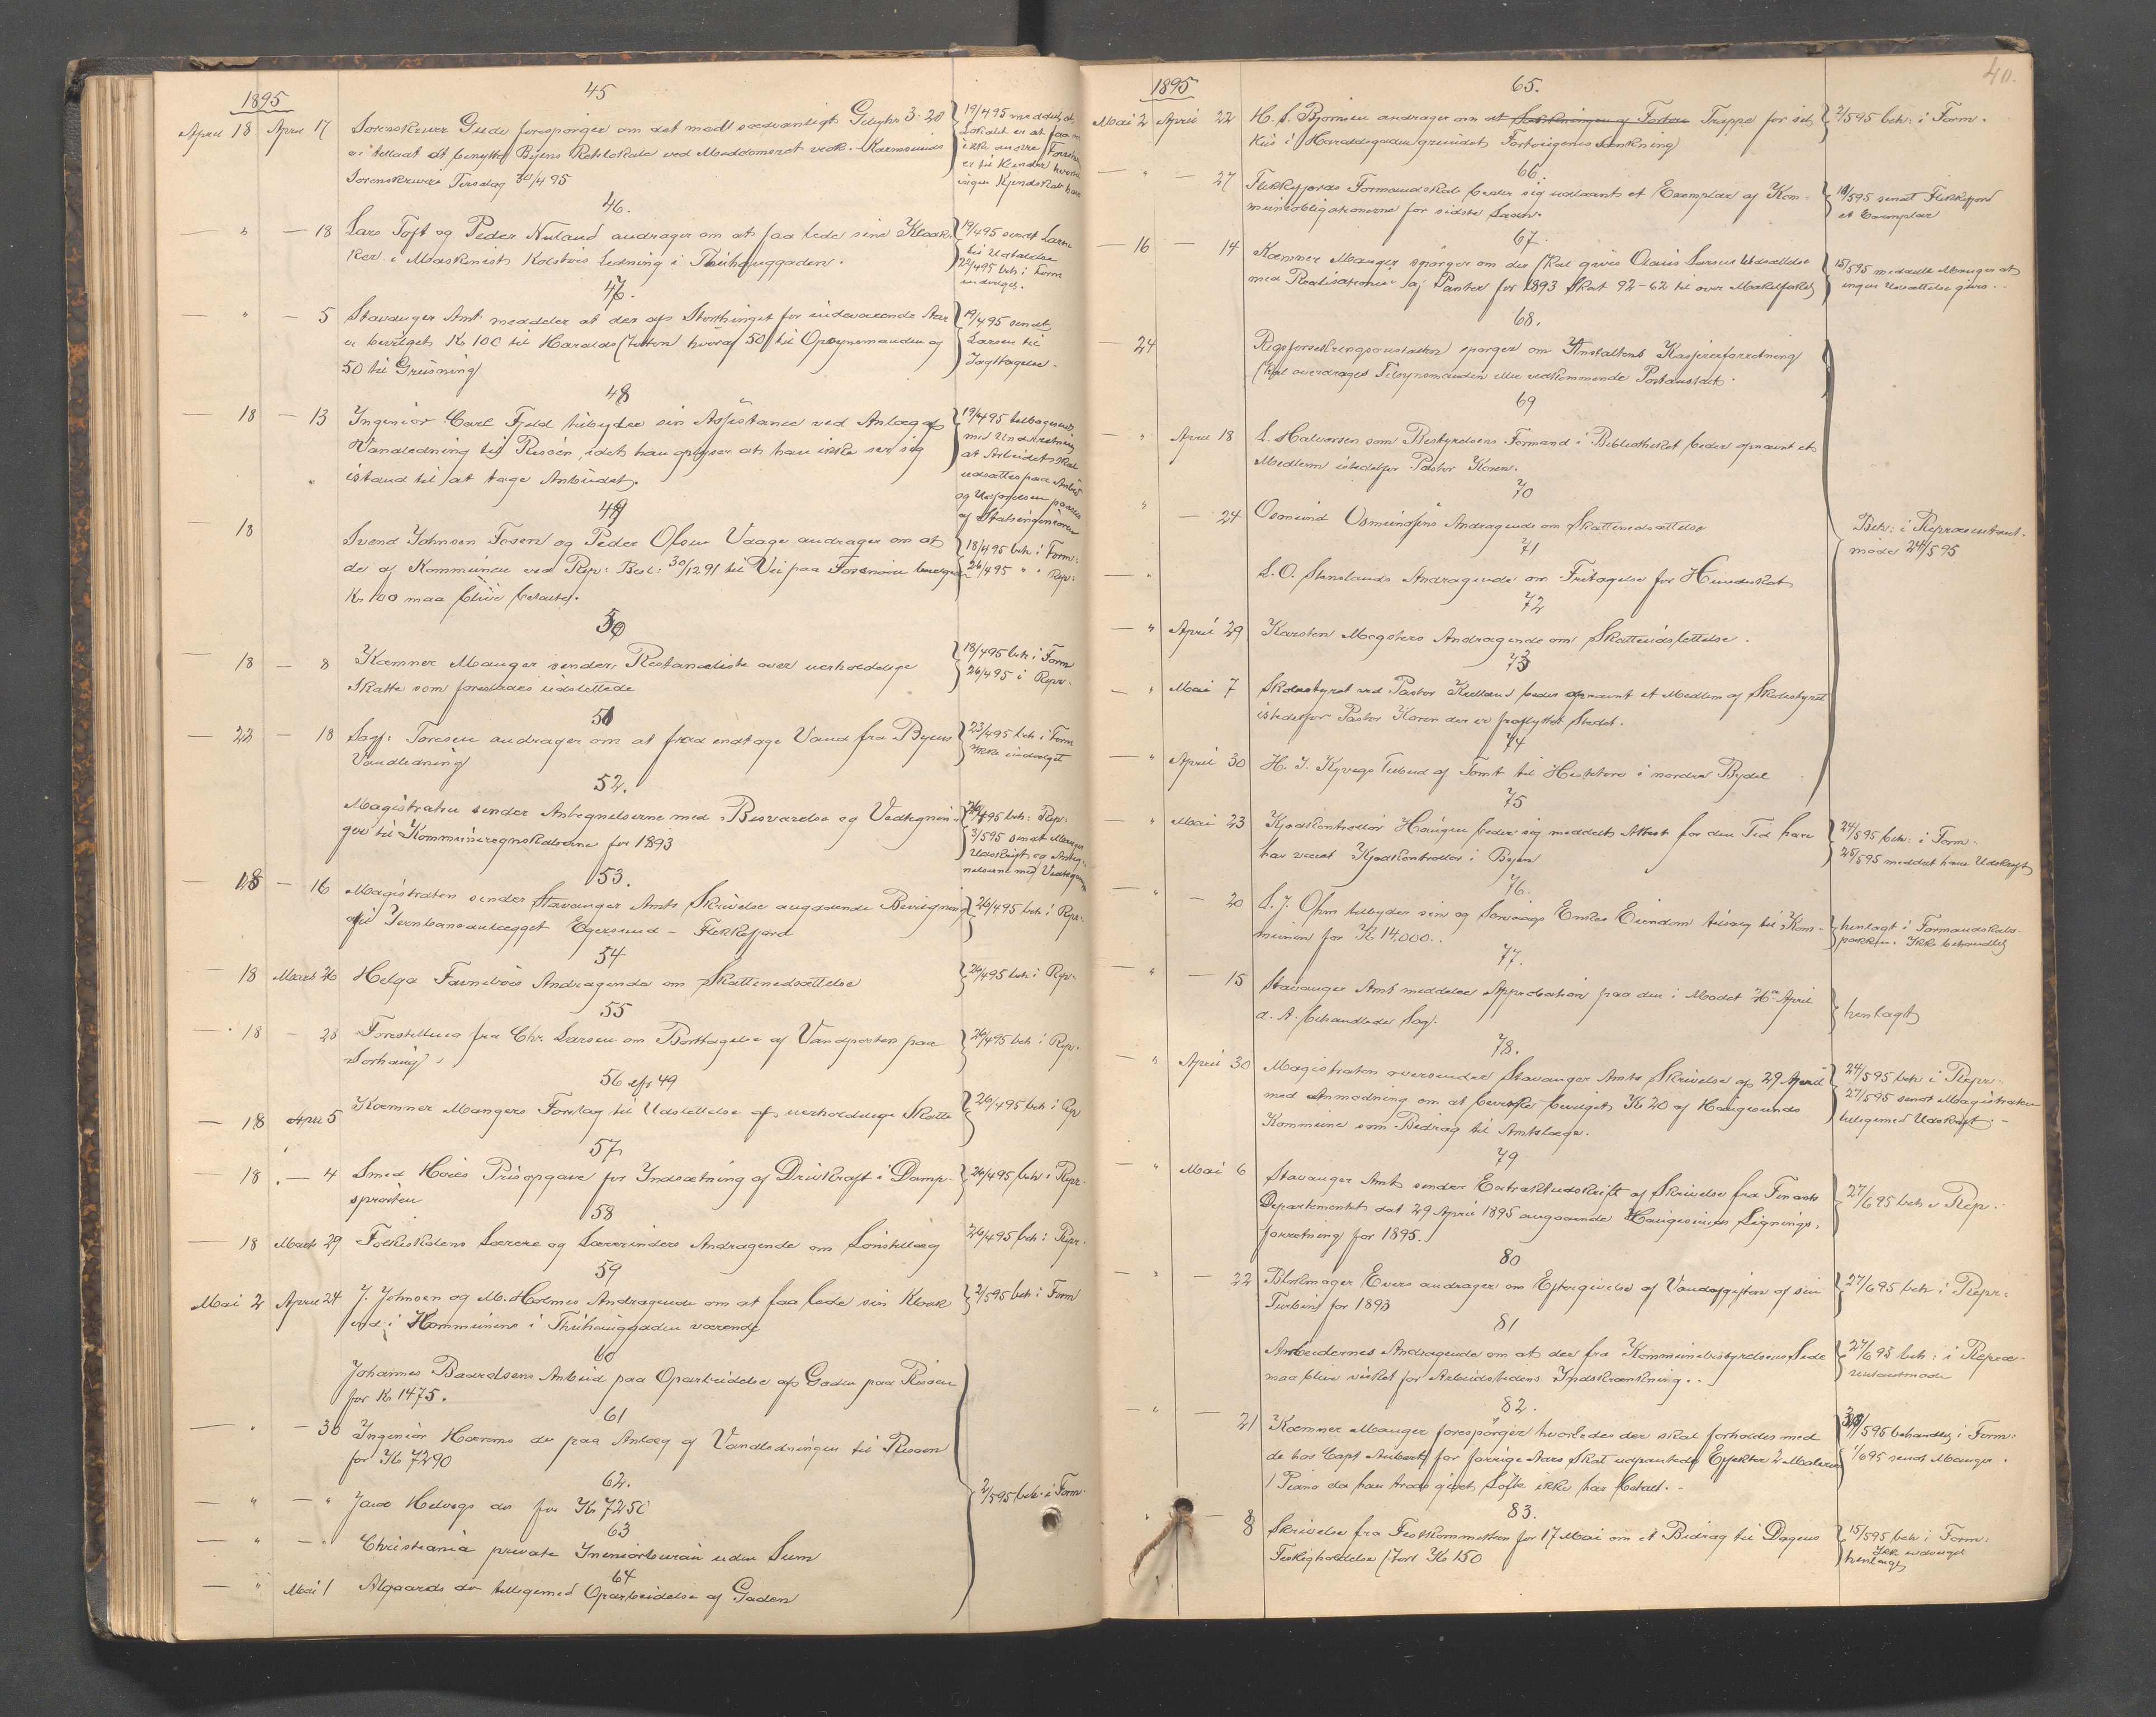 1895
45
April 18 April 17 Sorenskriver Gude forespørger om det mod sædvanligt Gebyhr 3.20 } 19/4 95 meddelt at
er tilladt at benytte Byens Retslokale ved Meddomsret vedk. Karmsunds Lokalet er at faa
Sorenskriveri Tirsdag 30/4 95
46.
— " — 18 Lars Toft og Peder Nuland andrager om at faa lede sine Kloak- } 19/4 95 sendt Larsen
ker i Maskinist Kolstøs Ledning i Thuhauggaden. til Udtalelse
22/4 95 beh i Form
indvilget.
47.
— " — 5 Stavanger Amt meddeler at der af Storthinget for indeværende Aar } 19/4 95 sendt
er bevilget Kr 100 til Haralds Støtten hvoraf 50 til Opsynsmanden og Larsen til
50 til Grusning Iagttagelse.
48
— 18 — 13 Ingeniør Carl Fjeld tilbyder sin Assistance ved Anlæg af } 19/4 95 tilbagesendt
Vandledning til Risøen, idet han oplyser at han ikke ser sig med Underretning
istand til at tage Anbudet. at Arbeidet skal
udsættes paa Anbud
og Udførelsen paasees
af Stadsingeniøren
49
— 18 Svend Johnsen Fosen og Peder Olsen Udage andrager om at } 18/4 95 beh i Form:
de af Kommunen ved Rep: Besl: 30/12 91 til Vei paa Fosenøen bevilgede 26/4 95 " " Rep:
Kr 100 maa blive betalte.
50
— 18 — 8 Kæmner Mauger sender Restanceliste over uerholdelige } 18/4 95 beh i Form
Skatte som forestaaes udslettede 26/4 95 i Repr.
51
— 22 — 18 Sagf: Toresen andrager om at faa endtage Vand fra Byens } 23/4 95 beh i Form
Vandledning ikke indvilget
52.
Magistraten sender Antegnelserne med Besvarelse og Vedtegnin- } 26/4 95 beh: Rep:
ger til Kommuneregnskaberne for 1893 3/5 95 sendt Mauger
Udskrift og Anteg-
nelserne med Vedtegn
53.
— 18 — 16 Magistraten sender Stavanger Amts Skrivelse angaaende Bevilgning } 26/4 95 beh i Repr.
til Jernbaneanlægget Egersund - Flekkefjord
54
— 18 Marts 26 Helga Favnebøes Andragende om Skattenedsættelse } 26/4 95 beh i Rep.
55
— 18 — 28 Forestilling fra Chr. Larsen om Borttagelse af Vandposten paa } 26/4 95 beh i Rep.
Sørhaug
56 cfr 49
— 18 April 5 Kæmner Maugers Forslag til Udslettelse af uerholdelige Skatte } 26/4 95 beh i Rep
57
— 18 — 4 Smed Høies Prisopgave for Indsætning af Drivkraft i Damp- } 26/4 95 beh i Repr.
sprøiten
58
— 18 Marts 29 Folkeskolens Lærere og Lærerinders Andragende om Lønstillæg 26/4 95 beh: Repr.
59
Mai 2 April 24 J. Johnsen og M. Holmes Andragende om at faa lede sin Kloak } 2/5 95 beh i Form
ind i Kommunens i Thuhauggaden værende
60
Johannes Baardsens Anbud paa Oparbeidelse af Gaden paa Risøen
for Kr 1475.
61
— " — 30 Ingeniør Horrems do paa Anlæg af Vandledningen til Risøen
for Kr 7290
62.
— " — " Jacob Helvigs do for Kr 7250 } 2/5 95 beh. i Form.
63
— " — " Christiania private Ingeniørbureau uden Sum
64
— " Mai 1 Algaards do tilligemed Oparbeidelse af Gaden
40.
1895
65.
Mai 2 April 22 H. S. Bjørnsen andrager om at Trappe for sit } 2/5 95 beh: i Form.
Hus i Haraldsgaden grundet Fortougenes Sænkning
66.
— " — 27 Flekkefjords Formandskab beder sig udlaant et Exemplar af Kom- } 18/5 95 sendt Flekkefjord
muneobligationerne for sidste Laan. et Exemplar
67.
— 16 — 14 Kæmner Mauger spørger om der skal gives Olaus Larsen Udsættelse } 15/5 95 meddelt Mauger at
med Realisationen af Panter for 1893 Skat 92-62 til over Makelfisket ingen Udsættelse gives.
68.
— 24 Rigsforsikringsanstalten spørger om Anstaltens Kassererforretning
skal overdrages Tilsynsmanden eller vedkommende Postanstalt.
69
— " April 18 L. Halvorsen som Bestyrelsens Formand i Bibliotheket beder opnævnt et
Medlem istedetfor Pastor Koren.
70
" — 24 Osmund Osmundsens Andragende om Skattenedsættelse Beh: i Repræsentant-
møde 24/5 95
71
— " L. O. Stenslands Andragende om Fritagelse for Hundeskat
72
— " April 29 Karsten Magsters Andragende om Skatteudslettelse.
73
— " Mai 7 Skolestyret ved Pastor Kielland beder opnævnt et Medlem af Skolestyret
istedetfor Pastor Koren der er fraflyttet Stedet.
74
— " April 30 H. J. Kyvigs Tilbud af Tomt til i nordre Bydel
75
— " Mai 23 Kjødkontrollør Haugen beder sig meddelt Attest for den Tid han } 24/5 95 beh: i Form.
har været Kjødkontrollør i Byen 25/5 95 meddelt ham Udskrift
76.
— " — 20 S. J. Ohm tilbyder sin og Enkes Eiendom tilsalg til Kom- } henlagt i Formandskabs-
munen for Kr 14,000.. pakken. Ikke behandlet
77.
— " — 15 Stavanger Amt meddeler Approbation paa den i Mødet 26de April } henlagt
d. A. behandlede Sag.
78.
— " April 30 Magistraten oversender Stavanger Amts Skrivelse af 29 April } 24/5 95 beh i Repr.
med Anmodning om at bevirke bevilget Kr 20 af Haugesunds 27/5 95 sendt Magistraten
Kommune som Bidrag til Amtslæge. tilligemed Udskrift. —
79
— " Mai 6 Stavanger Amt sender Extraktudskrift af Skrivelse fra Finants } 27/6 95 beh i Rep.
Departementet dat 29 April 1895 angaaende Haugesunds Lignings-
forretning for 1895.
80
— " — 22 Blokmager Evers andrager om Eftergivelse af Vandafgiften af sin } 27/6 95 beh i Repr.
Turbin for 1893
81
Arbeidernes Andragende om at der fra Kommunebestyrelsens Side } 27/6 95 beh: i Repræ-
maa blive virket for Arbeidstidens Indskrænkning.. sentantmøde
82.
— " — 21 Kæmner Mauger forespørger hvorledes der skal forholdes med } 31/5 95 behandlet i Form:
de hos Capt Aubert for forrige Aars Skat udpantede Effekter 2 Malerier 1/6 95 sendt Mauger.
1 Piano da han trods givet Løfte ikke har betalt. —
83.
" — 8 Skrivelse fra Festkommitteen for 17 Mai om et Bidrag til Dagens } 15/5 95 beh i Form:
Festligholdelse stort Kr 150 Ikke indvilget
henlagt